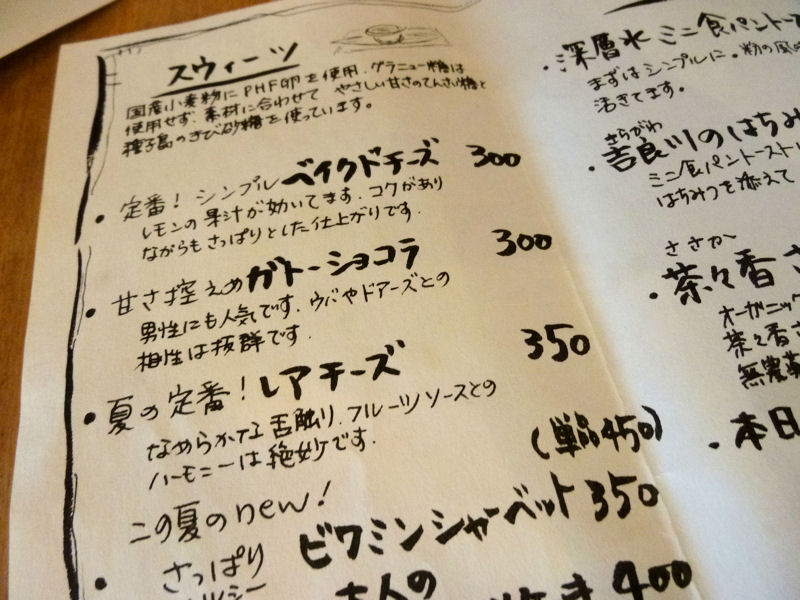 スウィーツ
国産小麦粉にPHF卵を使用、グラニュー糖は
使用せず、素材に合わせて やさしい甘さのてんさい糖と
種子島のきび砂糖を使っています。
・定番! シンプルベイクドチーズ 300
レモンの果汁が効いてます、コクがあり
ながらもさっぱりとした仕上がりです。
・甘さ控えめガトーショコラ 300
男性にも人気です、ウバやドアーズとの
相性は抜群です。
・夏の定番!レアチーズ 350
なめらかな舌触り、フルーツソースとの
ハーモニーは絶妙です。
(単品450)
この夏のnew!
・さっぱり
ビワミンシャーベット 350
ルシー
大人の
400
・深層水ミニ食パントー
まずはシンプルに、粉の風
活きてます。
さらがわ
・吉良川のはちみ
ミニ食パントースト
はちみつを添えて
ささかー
・茶々香 さ
オーガニック
茶々香さ
無農薬
・本日